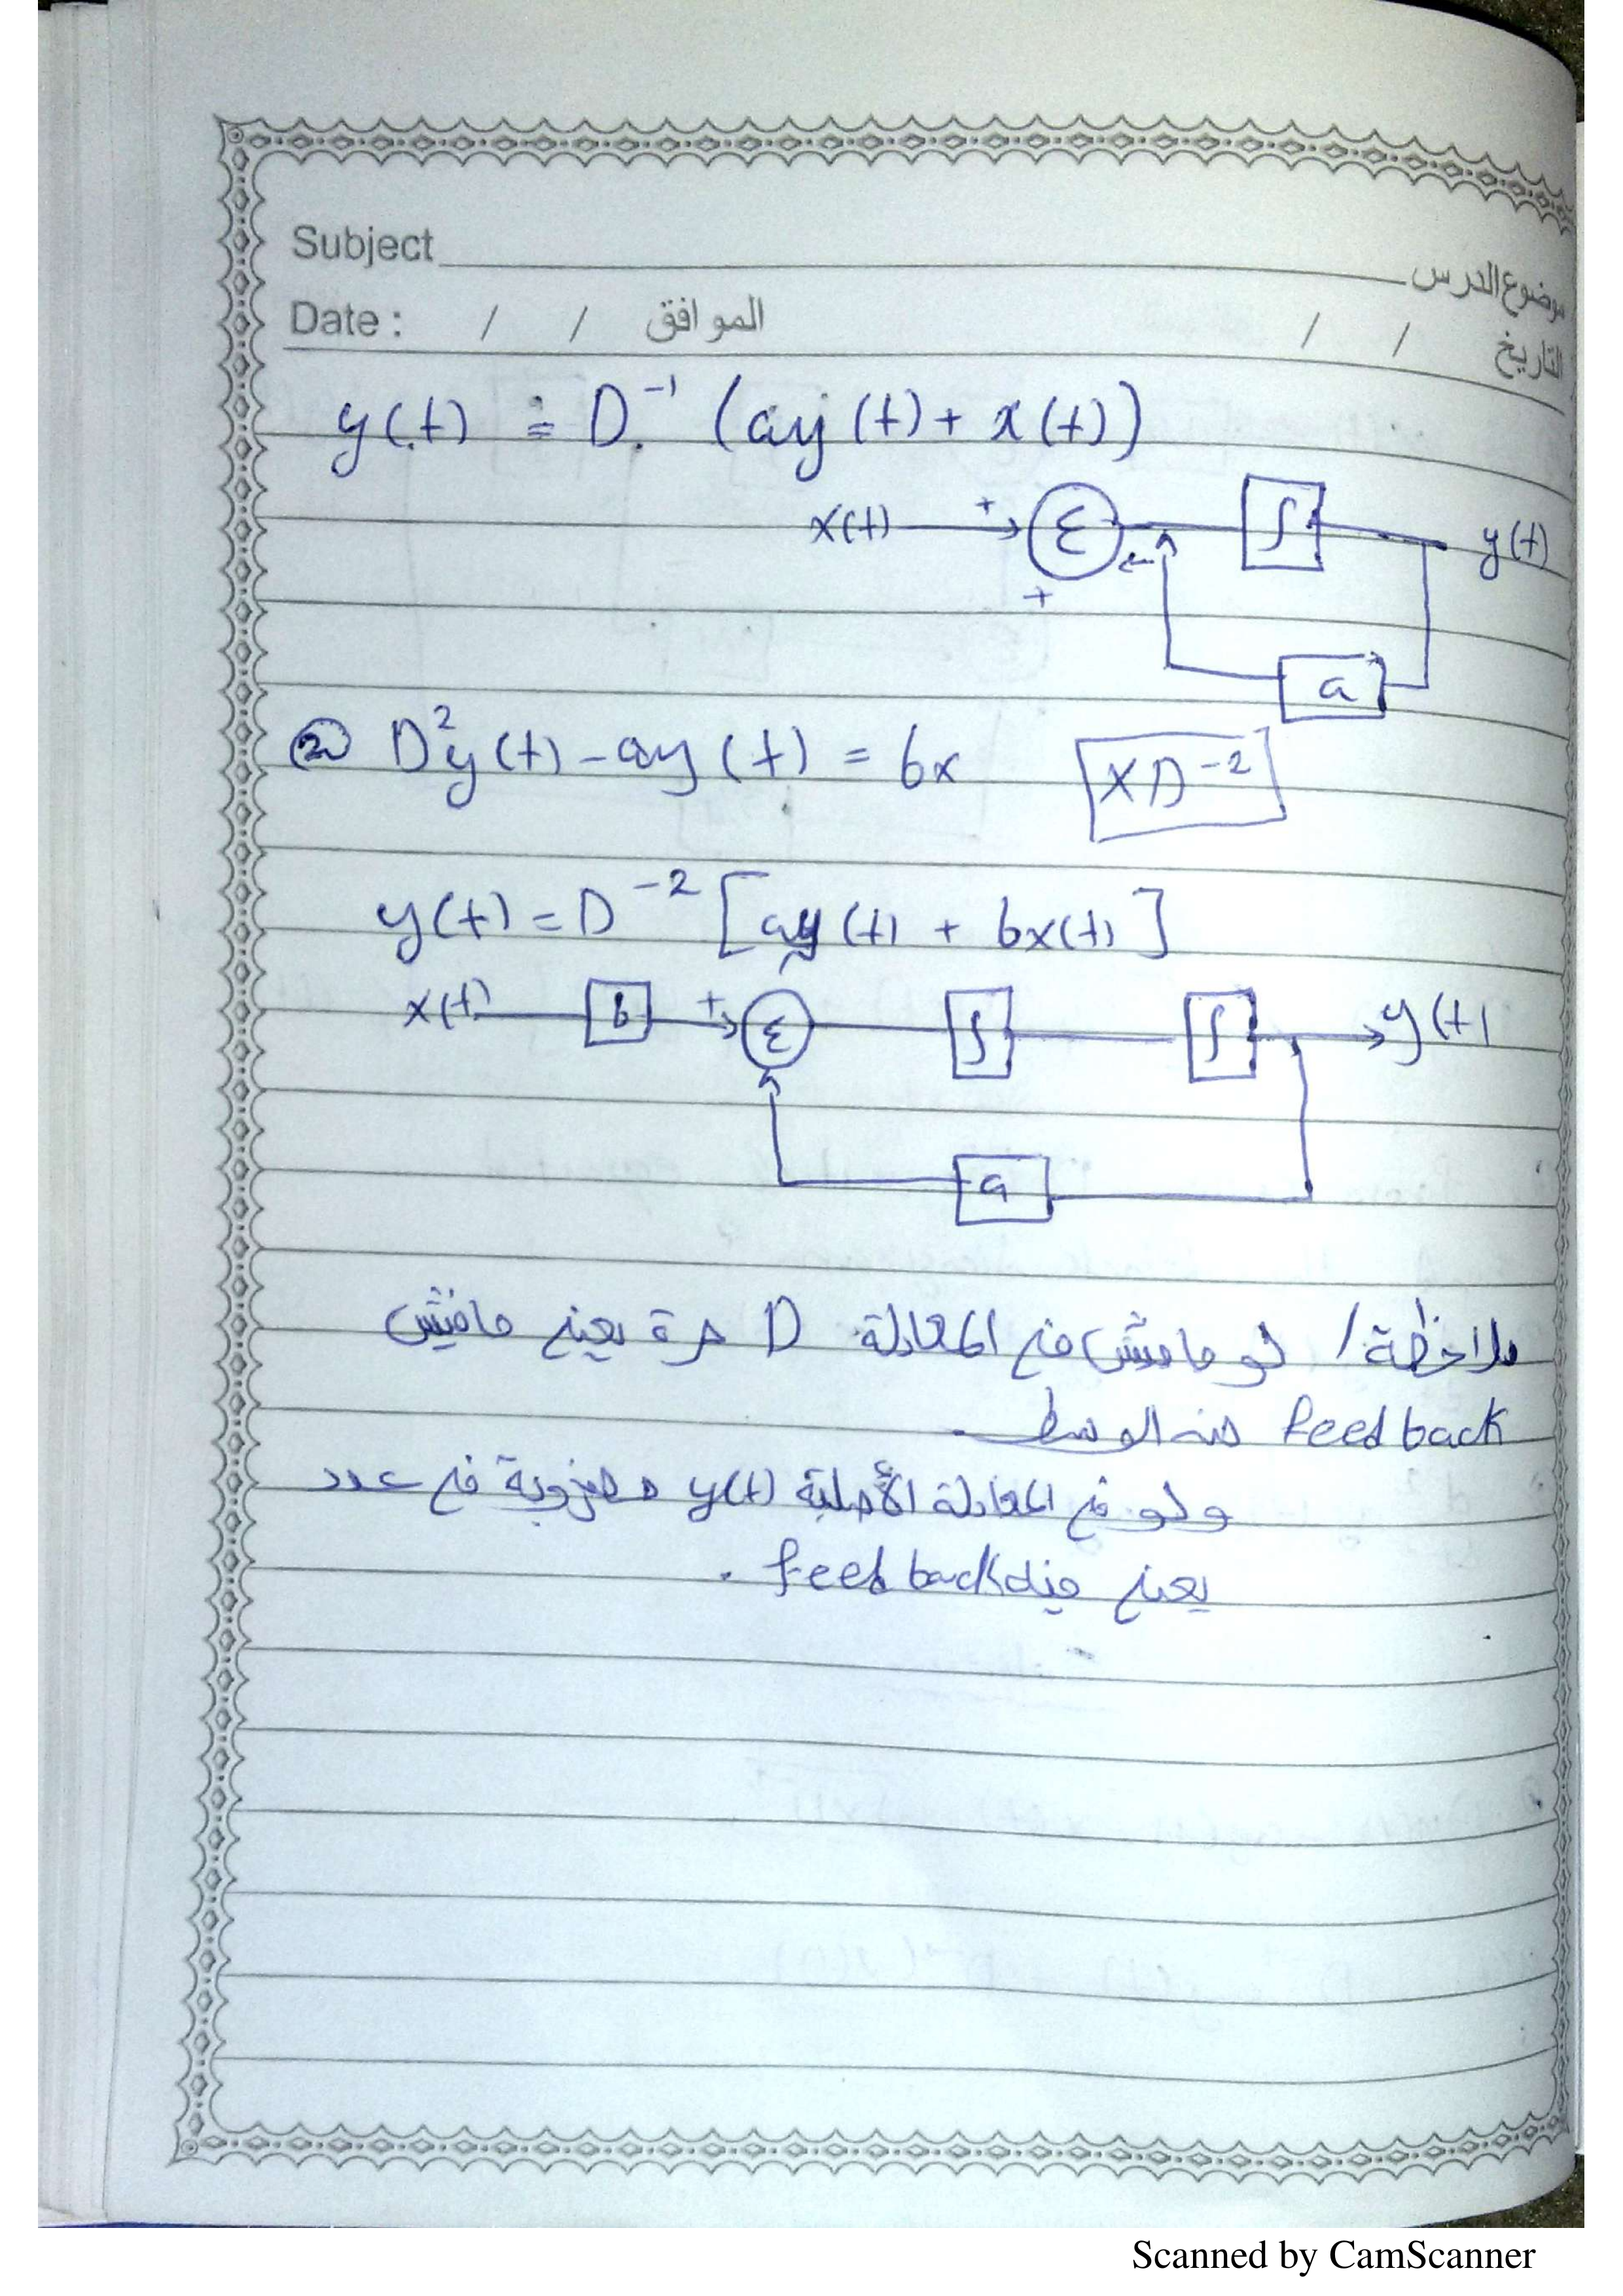 Subject موضوع الدرس
Date : / / الموافق / / التاريخ
y(t) = D⁻¹ (ay(t) + x(t))
x(t) + Σ ∫ y(t)
+
a
② D²y(t) - ay(t) = bx [X D⁻²]
y(t) = D⁻² [ay(t) + bx(t)]
x(t) b + Σ ∫ ∫ y(t)
a
ملاحظة / لو مافيش في المعادلة D حرة يعني مافيش
feedback من الوسط
ولو في المعادلة الأصلية y(t) مضروبة في عدد
يعني فيه feedback .
Scanned by CamScanner